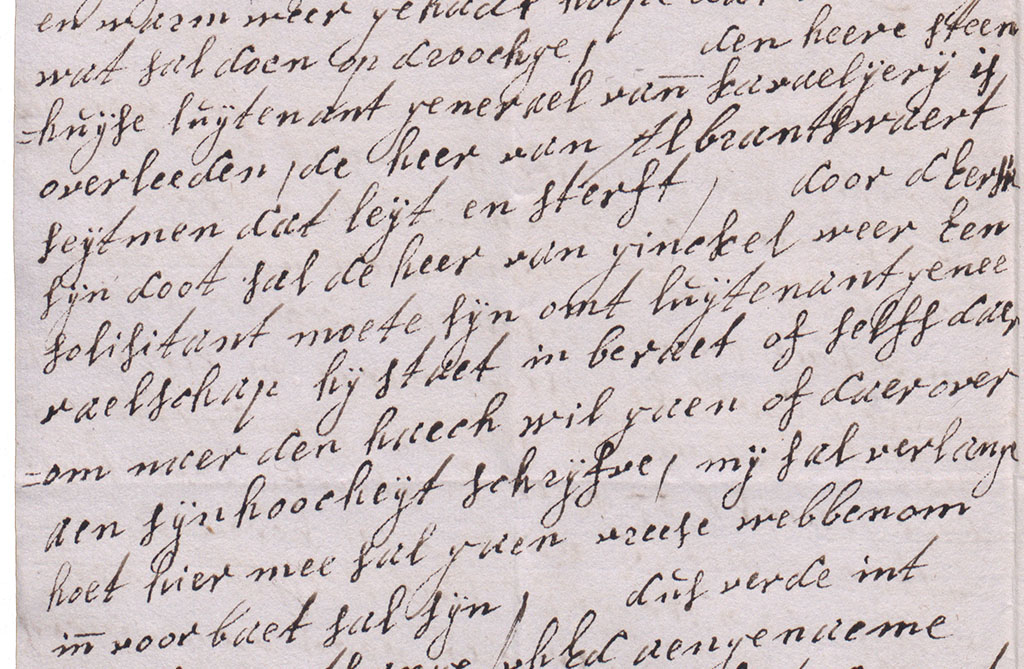 en warm weer gehadt hoope dat
wat sal doen op droochge / den heere steen
=huÿse luÿtenant generael vañ kavaelÿerÿ is
overleeden / de heer van Albrantswaert
seÿtmen dat leÿt en sterft / door d Eerste
sÿn doot sal de heer van ginckel weer Een
solisitant moete sÿn omt luÿtenant genee
raelschap hÿ staet in beraet of selfs daer
=om naer den haech wil gaen of daer over
aen sÿn hoocheÿt schrÿfve / mÿ sal verlange
hoet hier mee sal gaen vreese webbenom
iñ voor baet sal sÿn / dus verde int
aengenaeme